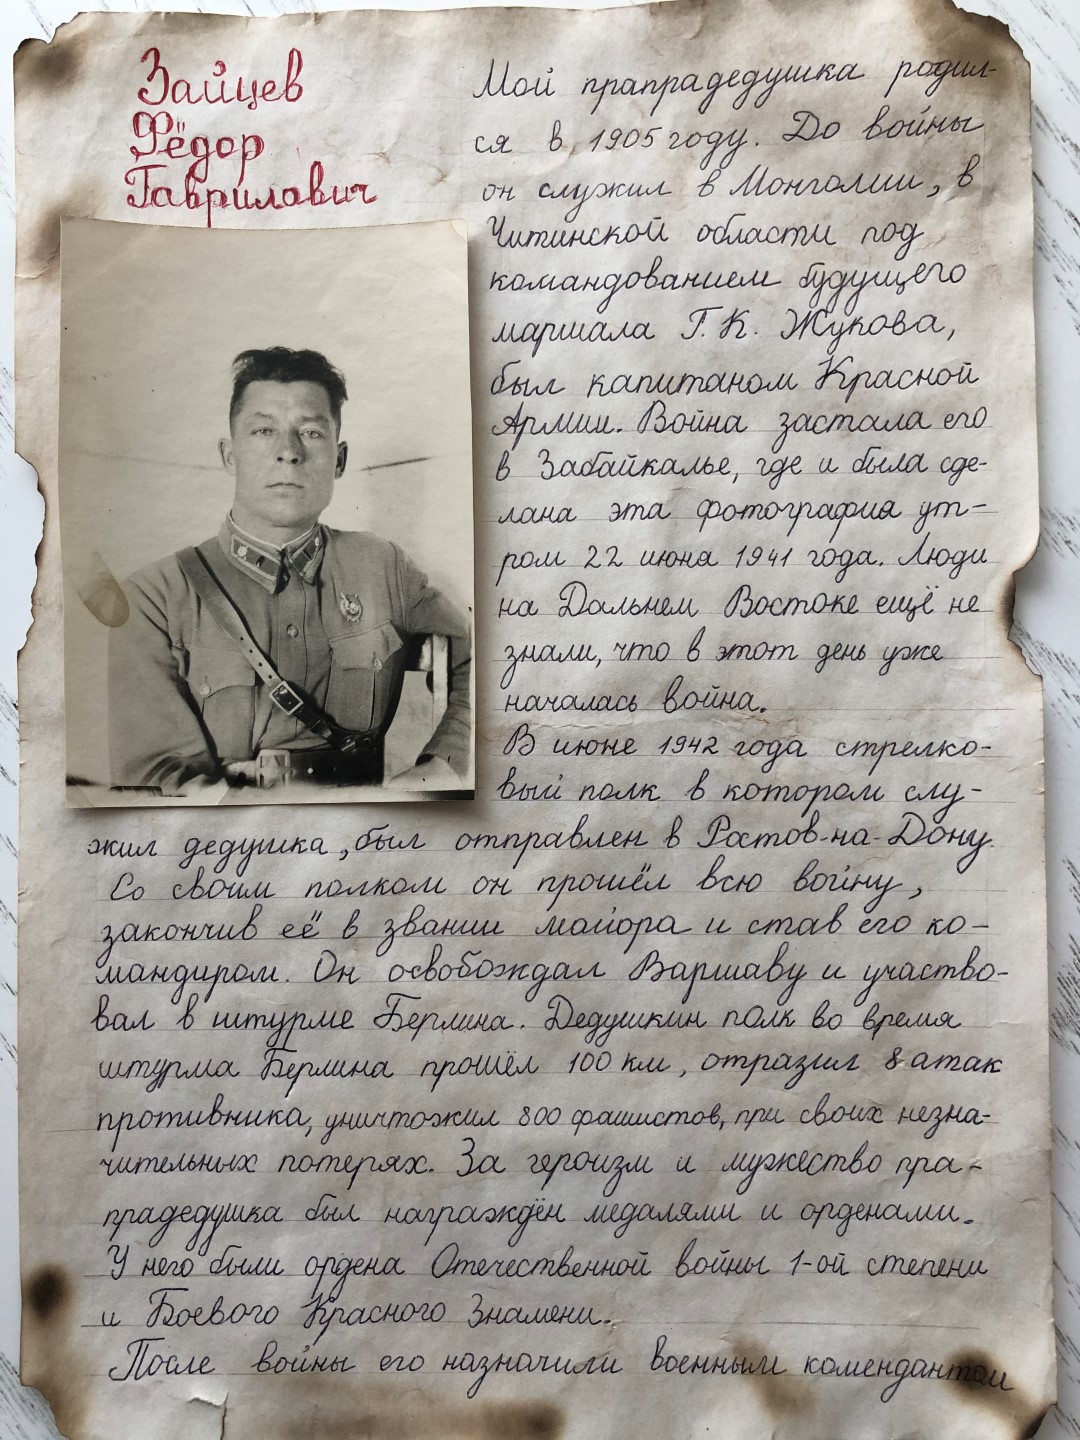 Зайцев
Фёдор
Гаврилович
Мой прапрадедушка родил-
ся в 1905 году. До войны
он служил в Монголии, в
Читинской области под
командованием будущего
маршала Г. К. Жукова,
был капитаном Красной
Армии. Война застала его
в Забайкалье, где и была сде-
лана эта фотография ут-
ром 22 июня 1941 года. Люди
на Дальнем Востоке ещё не
знали, что в этот день уже
началась война.
В июне 1942 года стрелко-
вый полк в котором слу-
жил дедушка, был отправлен в Ростов-на-Дону.
Со своим полком он прошёл всю войну,
закончив её в звании майора и став его ко-
мандиром. Он освобождал Варшаву и участво-
вал в штурме Берлина. Дедушкин полк во время
штурма Берлина прошёл 100 км, отразил 8 атак
противника, уничтожил 800 фашистов, при своих незна-
чительных потерях. За героизм и мужество пра-
прадедушка был награждён медалями и орденами.
У него были ордена Отечественной войны 1-ой степени
и Боевого Красного Знамени.
После войны его назначили военным комендантом